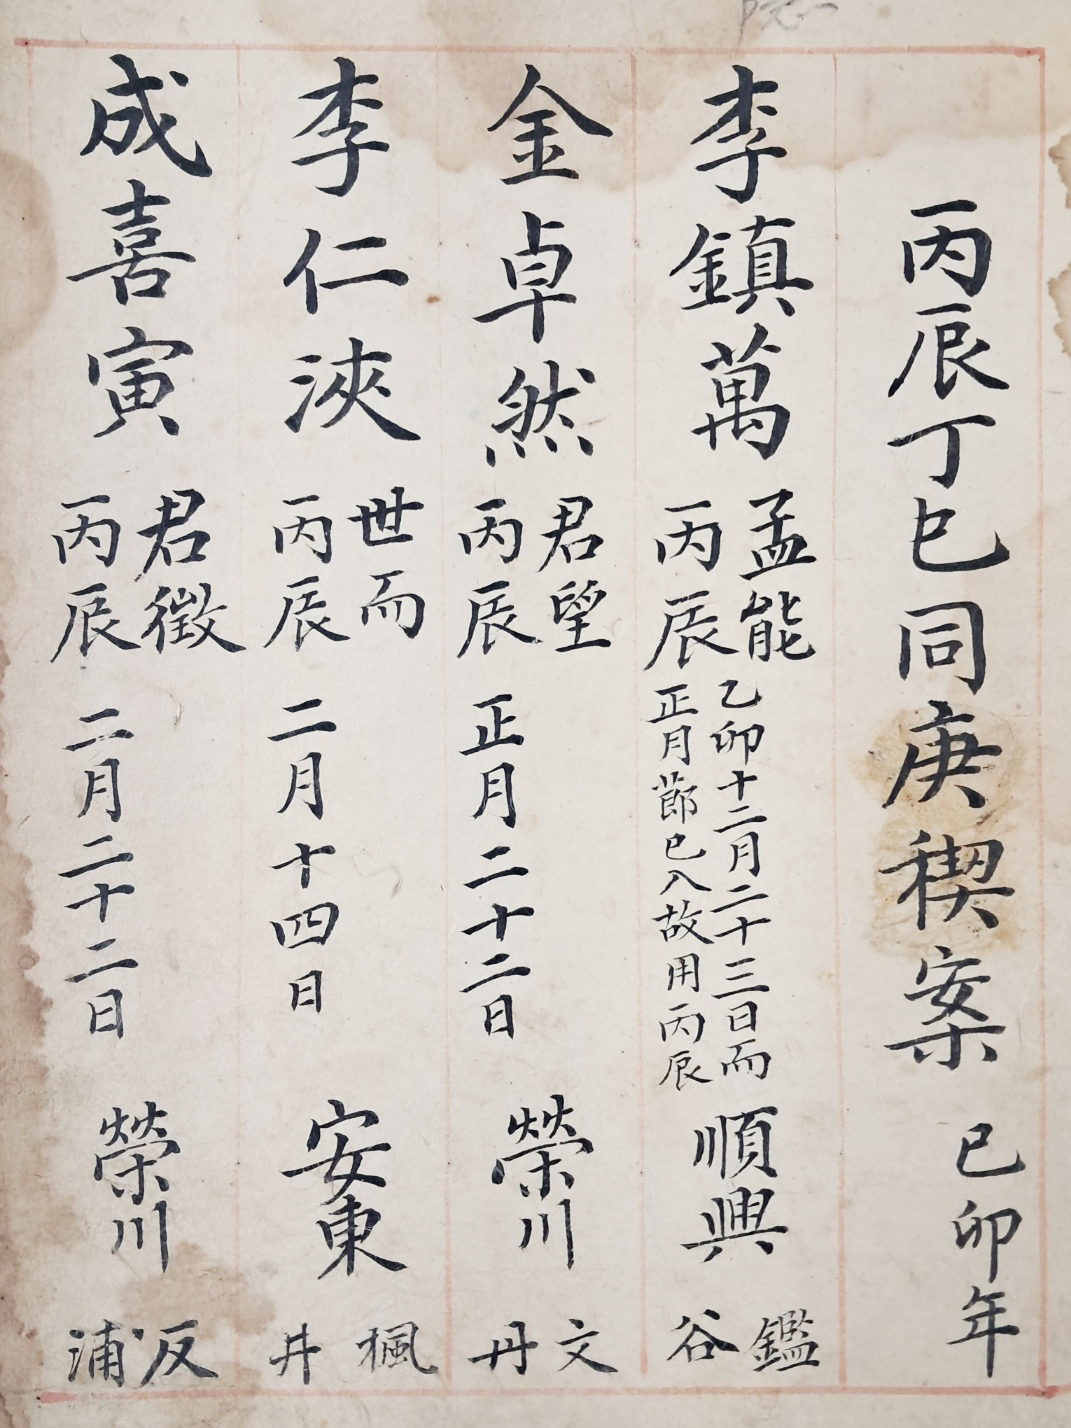 丙辰丁巳同庚稧案 己卯年
李鎮萬 孟能 丙辰 乙卯十二月二十三日而 正月節已入故用丙辰 順興 鑑谷
金卓然 君望 丙辰 正月二十二日 榮川 文丹
李仁浹 世而 丙辰 二月十四日 安東 楓井
成喜寅 君徵 丙辰 二月二十二日 榮川 浦